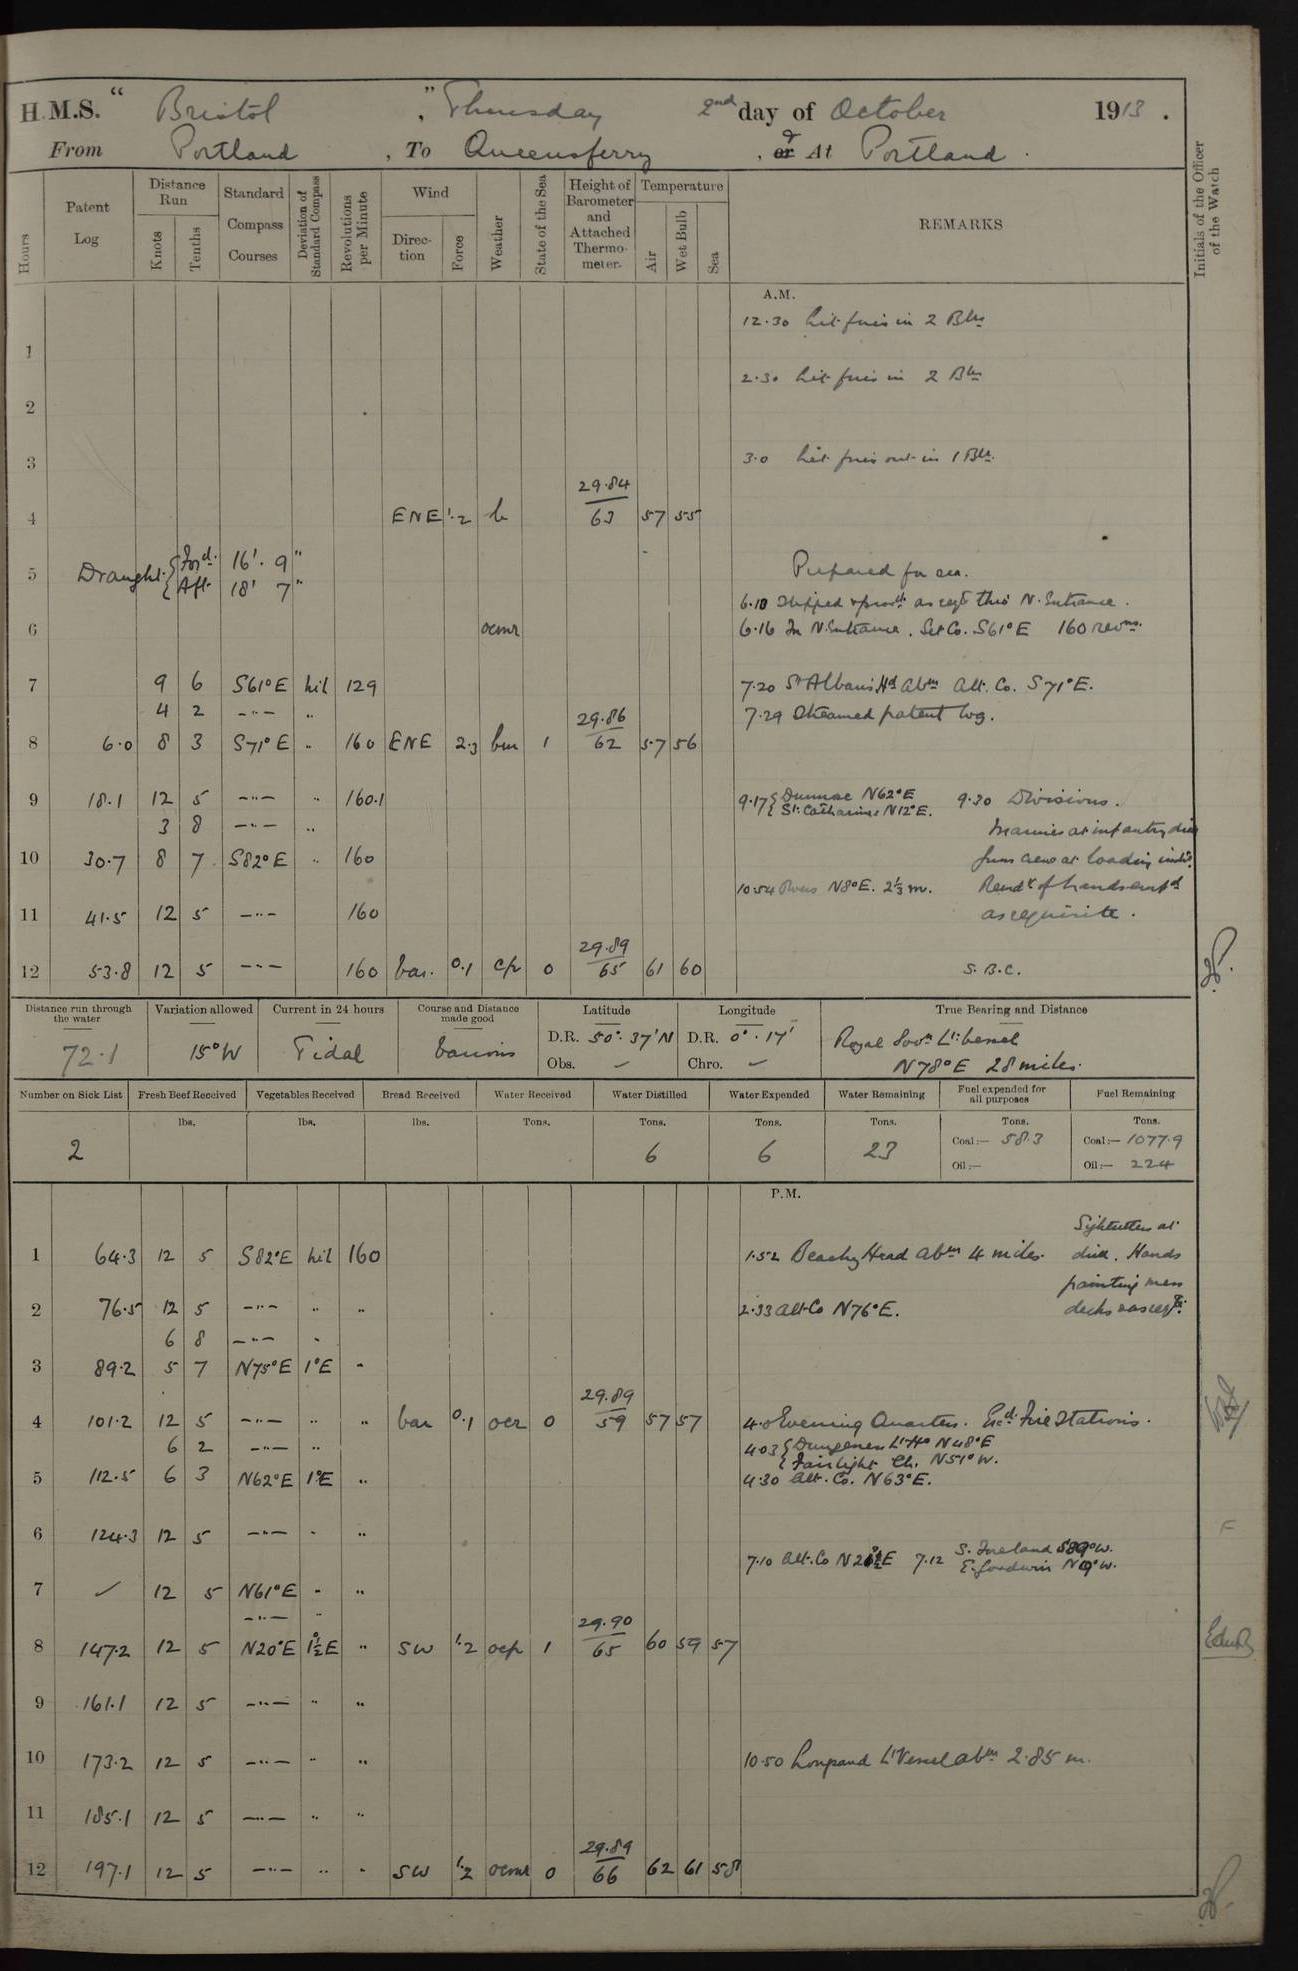 H.M.S. " Bristol ", Thursday 2nd day of October 1913.
From Portland, To Queensferry, or At Portland.
Hours
Patent Log
Distance Run
Knots
Tenths
Standard Compass Courses
Deviation of Standard Compass
Revolutions per Minute
Wind
Direction
Force
Weather
State of the Sea
Height of Barometer and Attached Thermometer
Temperature
Air
Wet Bulb
Sea
REMARKS
Initials of the Officer of the Watch
A.M.
12.30 Lit fires in 2 Blrs
1
2.30 Lit fires in 2 Blrs
2
3 3.0 Let fires out in 1 Blr.
29.84
4 ENE 1.2 b 63 57 55
5 Draught { Ford. 16'. 9"
{ Aft 18' 7"
Prepared for sea.
6.10 Slipped & procd as reqd thro N. Entrance.
6 ocmr 6.16 In N. Entrance. Set Co. S61°E 160 revns.
7 9 6 S61°E Nil 129 7.20 St Albans Hd Abm Alt. Co. S71°E.
4 2 —"— " 29.86 7.29 Streamed patent log.
8 6.0 8 3 S71°E " 160 ENE 2.3 bm 1 62 57 56
9 18.1 12 5 —"— " 160.1 9.17 { Dunnose N62°E 9.30 Divisions.
{ St. Catharines N12°E.
3 8 —"— " Marines at infantry drill
10 30.7 8 7 S82°E " 160 Guns crews at loading
10.54 Owers N8°E. 2⅓ m. Remdr of hands empd
11 41.5 12 5 —"— 160 as requisite.
29.89
12 53.8 12 5 —"— 160 bar. 0.1 cp 0 65 61 60 S.B.C.
Distance run through the water
72.1
Variation allowed
15°W
Current in 24 hours
Tidal
Course and Distance made good
Various
Latitude
D.R. 50°. 37'N
Obs. —
Longitude
D.R. 0°. 17'
Chro. —
True Bearing and Distance
Royal Sovn Lt. Vessel
N78°E 28 miles.
Number on Sick List
2
Fresh Beef Received
lbs.
Vegetables Received
lbs.
Bread Received
lbs.
Water Received
Tons.
Water Distilled
Tons.
6
Water Expended
Tons.
6
Water Remaining
Tons.
23
Fuel expended for all purposes
Tons.
Coal:— 58.3
Oil:—
Fuel Remaining
Tons.
Coal:— 1077.9
Oil:— 224
P.M.
Sightsetters at
1 64.3 12 5 S82°E Nil 160 1.52 Beachy Head abm 4 miles. drill. Hands
painting mess
2 76.5 12 5 —"— " " 2.33 Alt. Co N76°E. decks & as reqte.
6 8 —"— "
3 89.2 5 7 N75°E 1°E "
29.89
4 101.2 12 5 —"— " " bar 0.1 ocr 0 59 57 57 4.0 Evening Quarters. Exd. Fire Stations.
6 2 —"— " 4.03 { Dungeness Lt Ho N48°E
{ Fairlight Ch. N51°W.
5 112.5 6 3 N62°E 1°E " 4.30 Alt. Co. N63°E.
6 124.3 12 5 —"— " "
7.10 Alt. Co N21½°E 7.12 S. Foreland S89°W.
E. Goodwin N19°W.
7 ✓ 12 5 N61°E " "
—"— "
29.90
8 147.2 12 5 N20°E 1½°E " SW 1.2 ocp 1 65 60 59 57
9 161.1 12 5 —"— " "
10 173.2 12 5 —"— " " 10.50 Longsand Lt Vessel abm 2.85 m.
11 185.1 12 5 —"— " "
29.89
12 197.1 12 5 —"— " " SW 1.2 ocmr 0 66 62 61 58